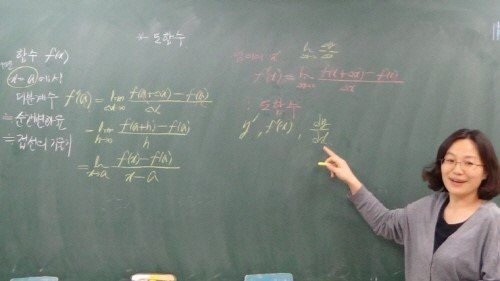 * 도함수
함수 f(x)
x=a에서
미분계수 f'(a) = lim Δx→0 f(a+Δx)-f(a) / Δx
≒ 순간변화율
= lim h→0 f(a+h)-f(a) / h
≒ 접선의 기울기
= lim x→a f(x)-f(a) / x-a
임의의 x lim Δx→0 Δy/Δx
f'(x) = lim Δx→0 f(x+Δx)-f(x) / Δx
: 도함수
y', f'(x), dy/dx